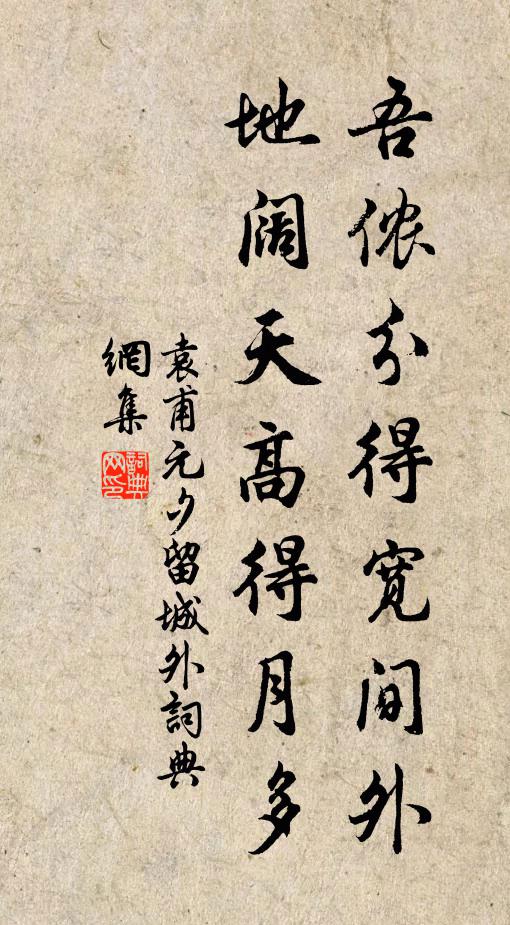 吾侬分得宽间外
地阔天高得月多
袁甫元夕留城外詞典
網集
詞典网印